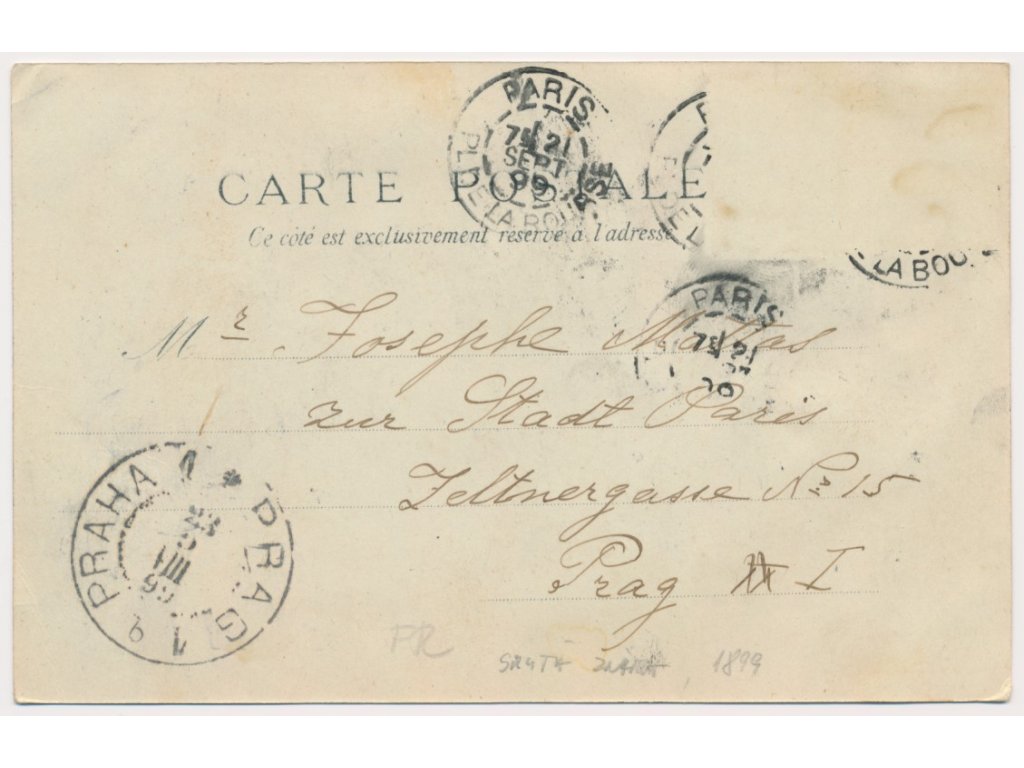 PARIS
7E 21
SEPT
99
PL. DE LA BOURSE
CARTE POSTALE
Ce côté est exclusivement réservé à l'adresse
LA BOU
PARIS
7E 21
Mr Josephe
zur Stadt Paris
Zeltnergasse No 15
Prag I
PRAHA 1 * PRAG 1
99
FR
1899